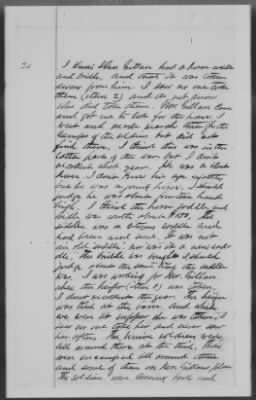 20
I knew Ellen Gillian had a horse saddle
and bridle, and that it was taken
away from him. I saw no one take
them (item 2) and do not know
who did take them. Mr. Gillian came
and got me to look for the horse. I
went and made search through the
camps of the soldiers but did not
find them. I think this was in the
latter part of the war but I don't
recollect what year. He was a
horse. I don't know his age exactly
but he was a young horse. I should
judge he was about fourteen hands
high. I think the horse saddle and
bridle was worth about $150. The
saddle was a citizens saddle and
had been used some. It was not
an old saddle nor was it a new sad-
dle. The bridle was bought I should
judge about the same time the saddle
was. I was working for Mr. Gillian
when the heifer (item 5) was taken,
I don't recollect the year. The heifer
was tied at the and while
we were at supper she was taken. I
saw no one take her and never saw
her after. The Union soldiers were
all around there at the time. They
were encamped all around there
and some of them on Mr. Gillians place
The soldiers were coming back and